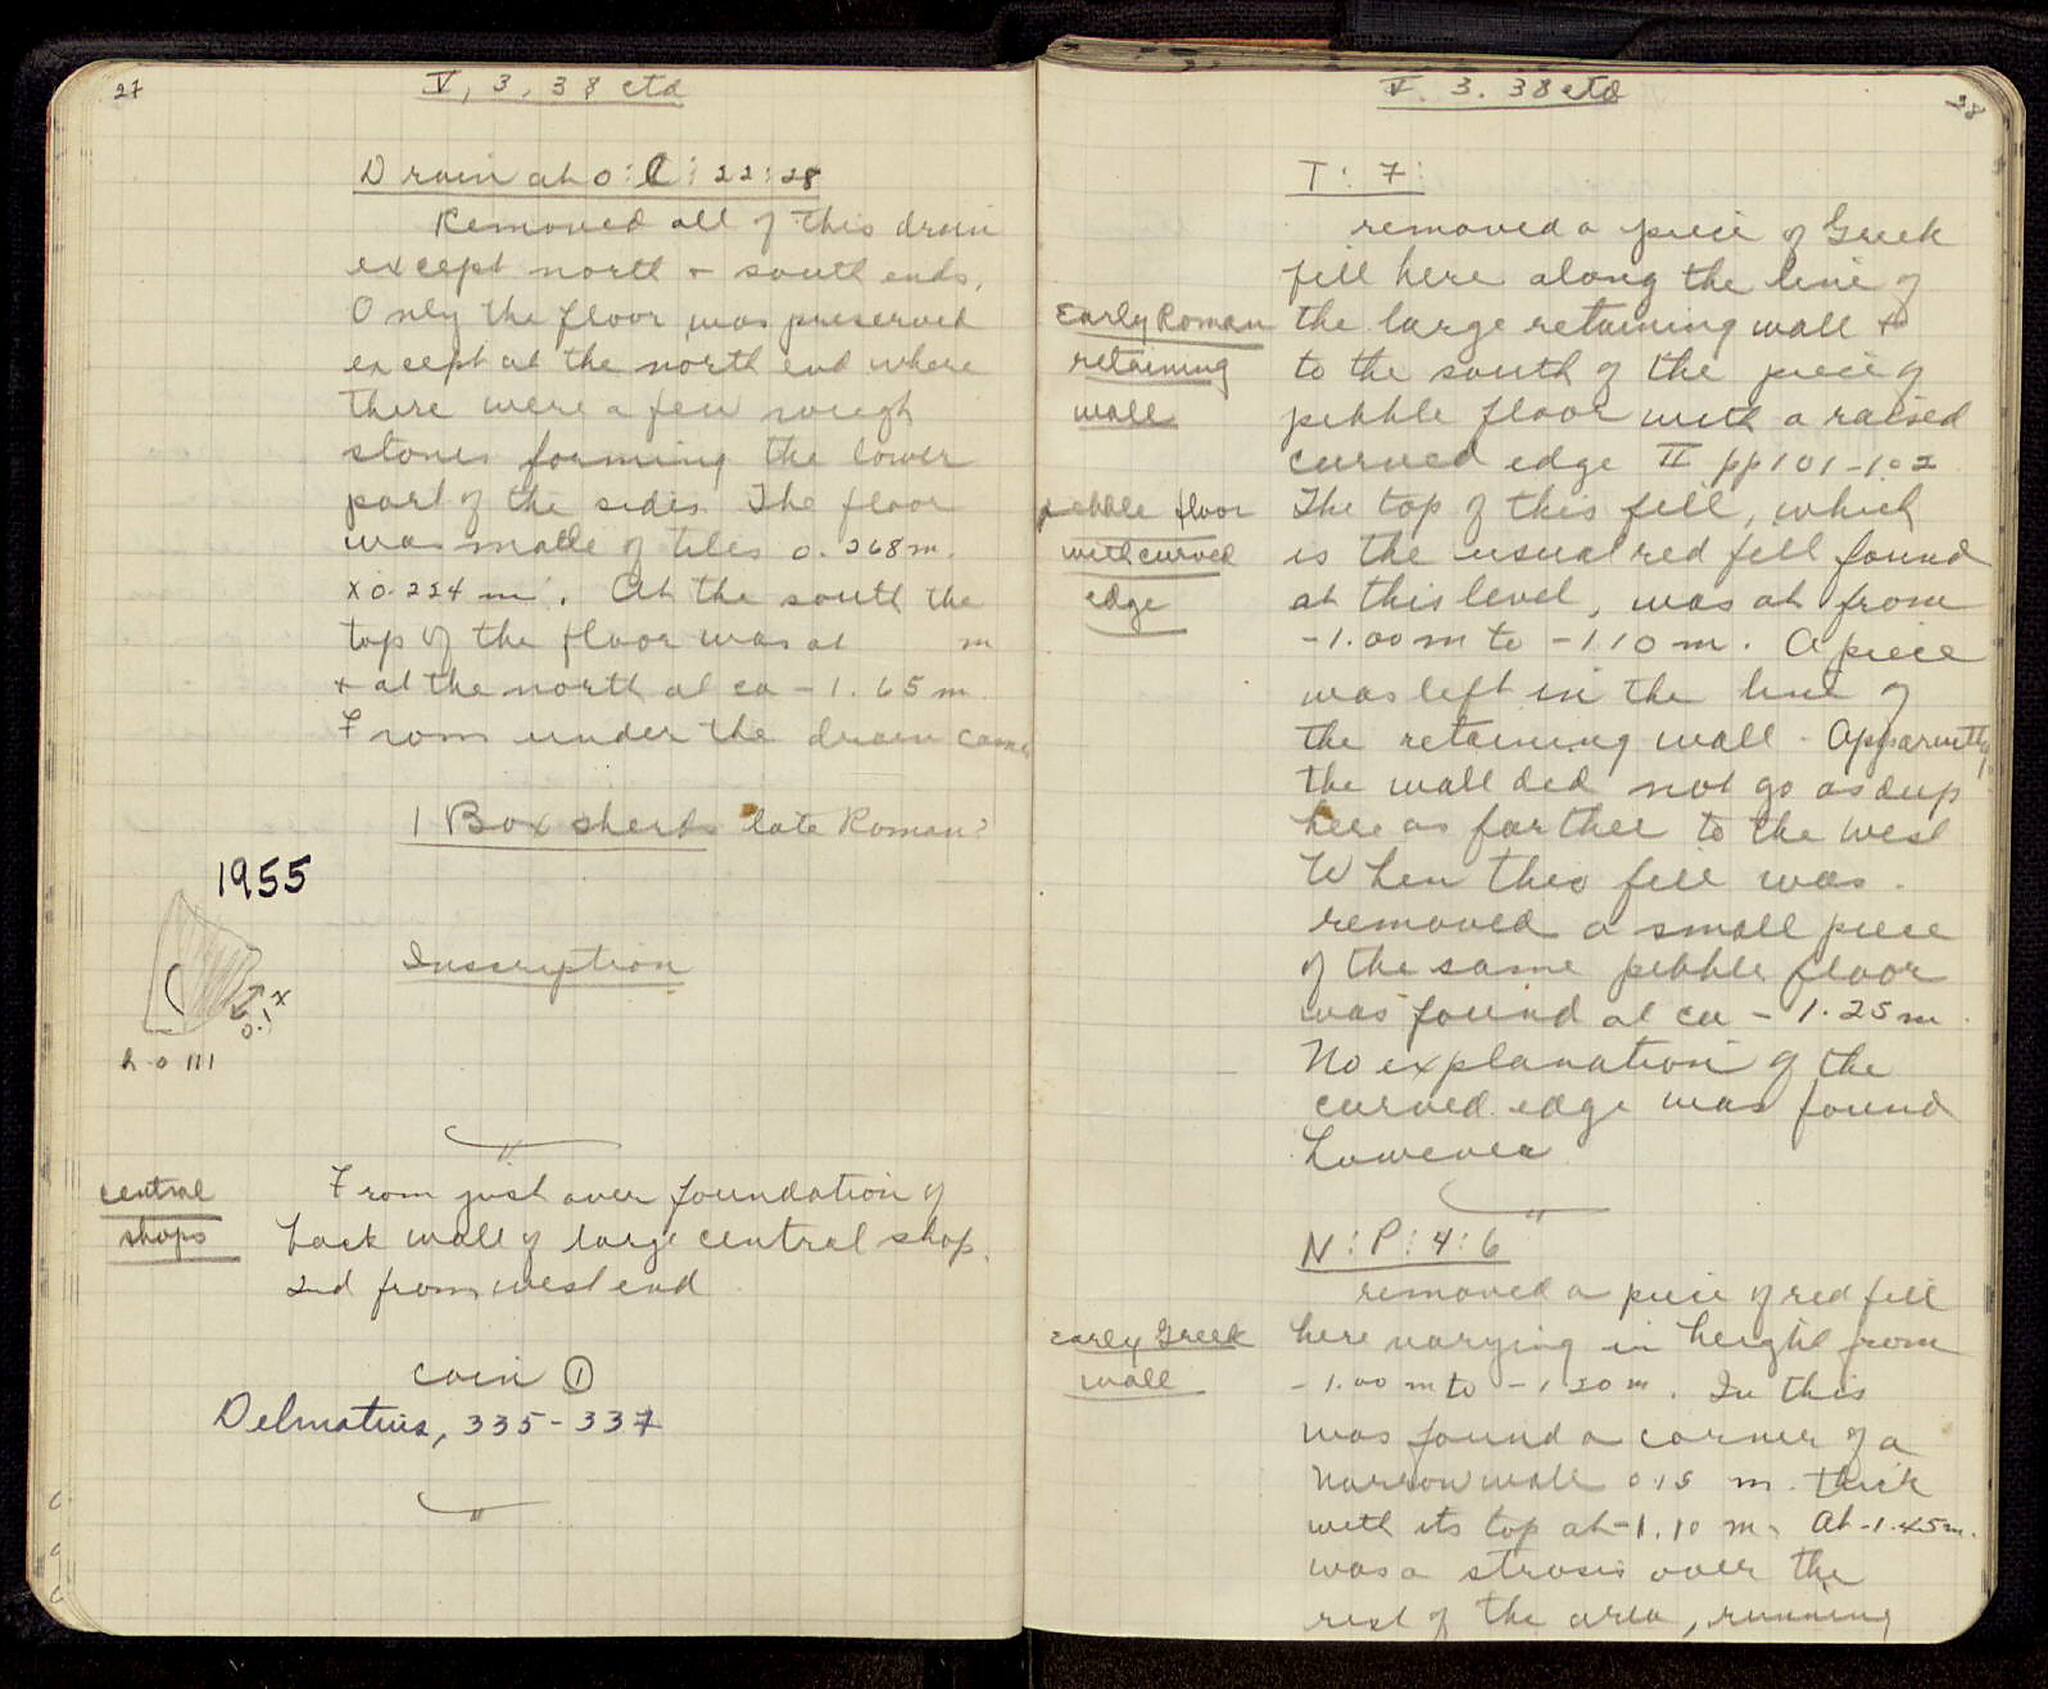 27
V, 3, 38 ctd
Drain at O:C:22:28
Removed all of this drain
except north + south ends.
Only the floor was preserved
except at the north end where
there were a few rough
stones forming the lower
part of the sides. The floor
was made of tiles 0.268 m.
x 0.224 m. At the south the
top of the floor was at m
+ at the north at ca -1.65 m.
From under the drain came
1 Box sherds late Roman?
1955
Inscription
x
0.1
h 0 111
central
shops
From just over foundation of
back wall of large central shop
2nd from west end
coin ①
Delmatius, 335-337
38
V. 3. 38 ctd
T: 7:
removed a piece of Greek
fill here along the line of
Early Roman
retaining
wall
the large retaining wall +
to the south of the piece of
pebble floor with a raised
curved edge II pp 101-102
pebble floor
with curved
edge
The top of this fill, which
is the usual red fell found
at this level, was at from
-1.00 m to -1 10 m. A piece
was left in the line of
the retaining wall. Apparently
the wall did not go as deep
here as farther to the west
When this fill was
removed a small piece
of the same pebble floor
was found at ca -1.25 m.
No explanation of the
curved edge was found
however
N:P:4:6
removed a piece of red fill
Early Greek
wall
here varying in height from
-1.00 m to -1 20 m. In this
was found a corner of a
narrow wall 0.15 m. thick
with its top at -1.10 m. At -1.45 m.
was a strosis over the
rest of the area, running